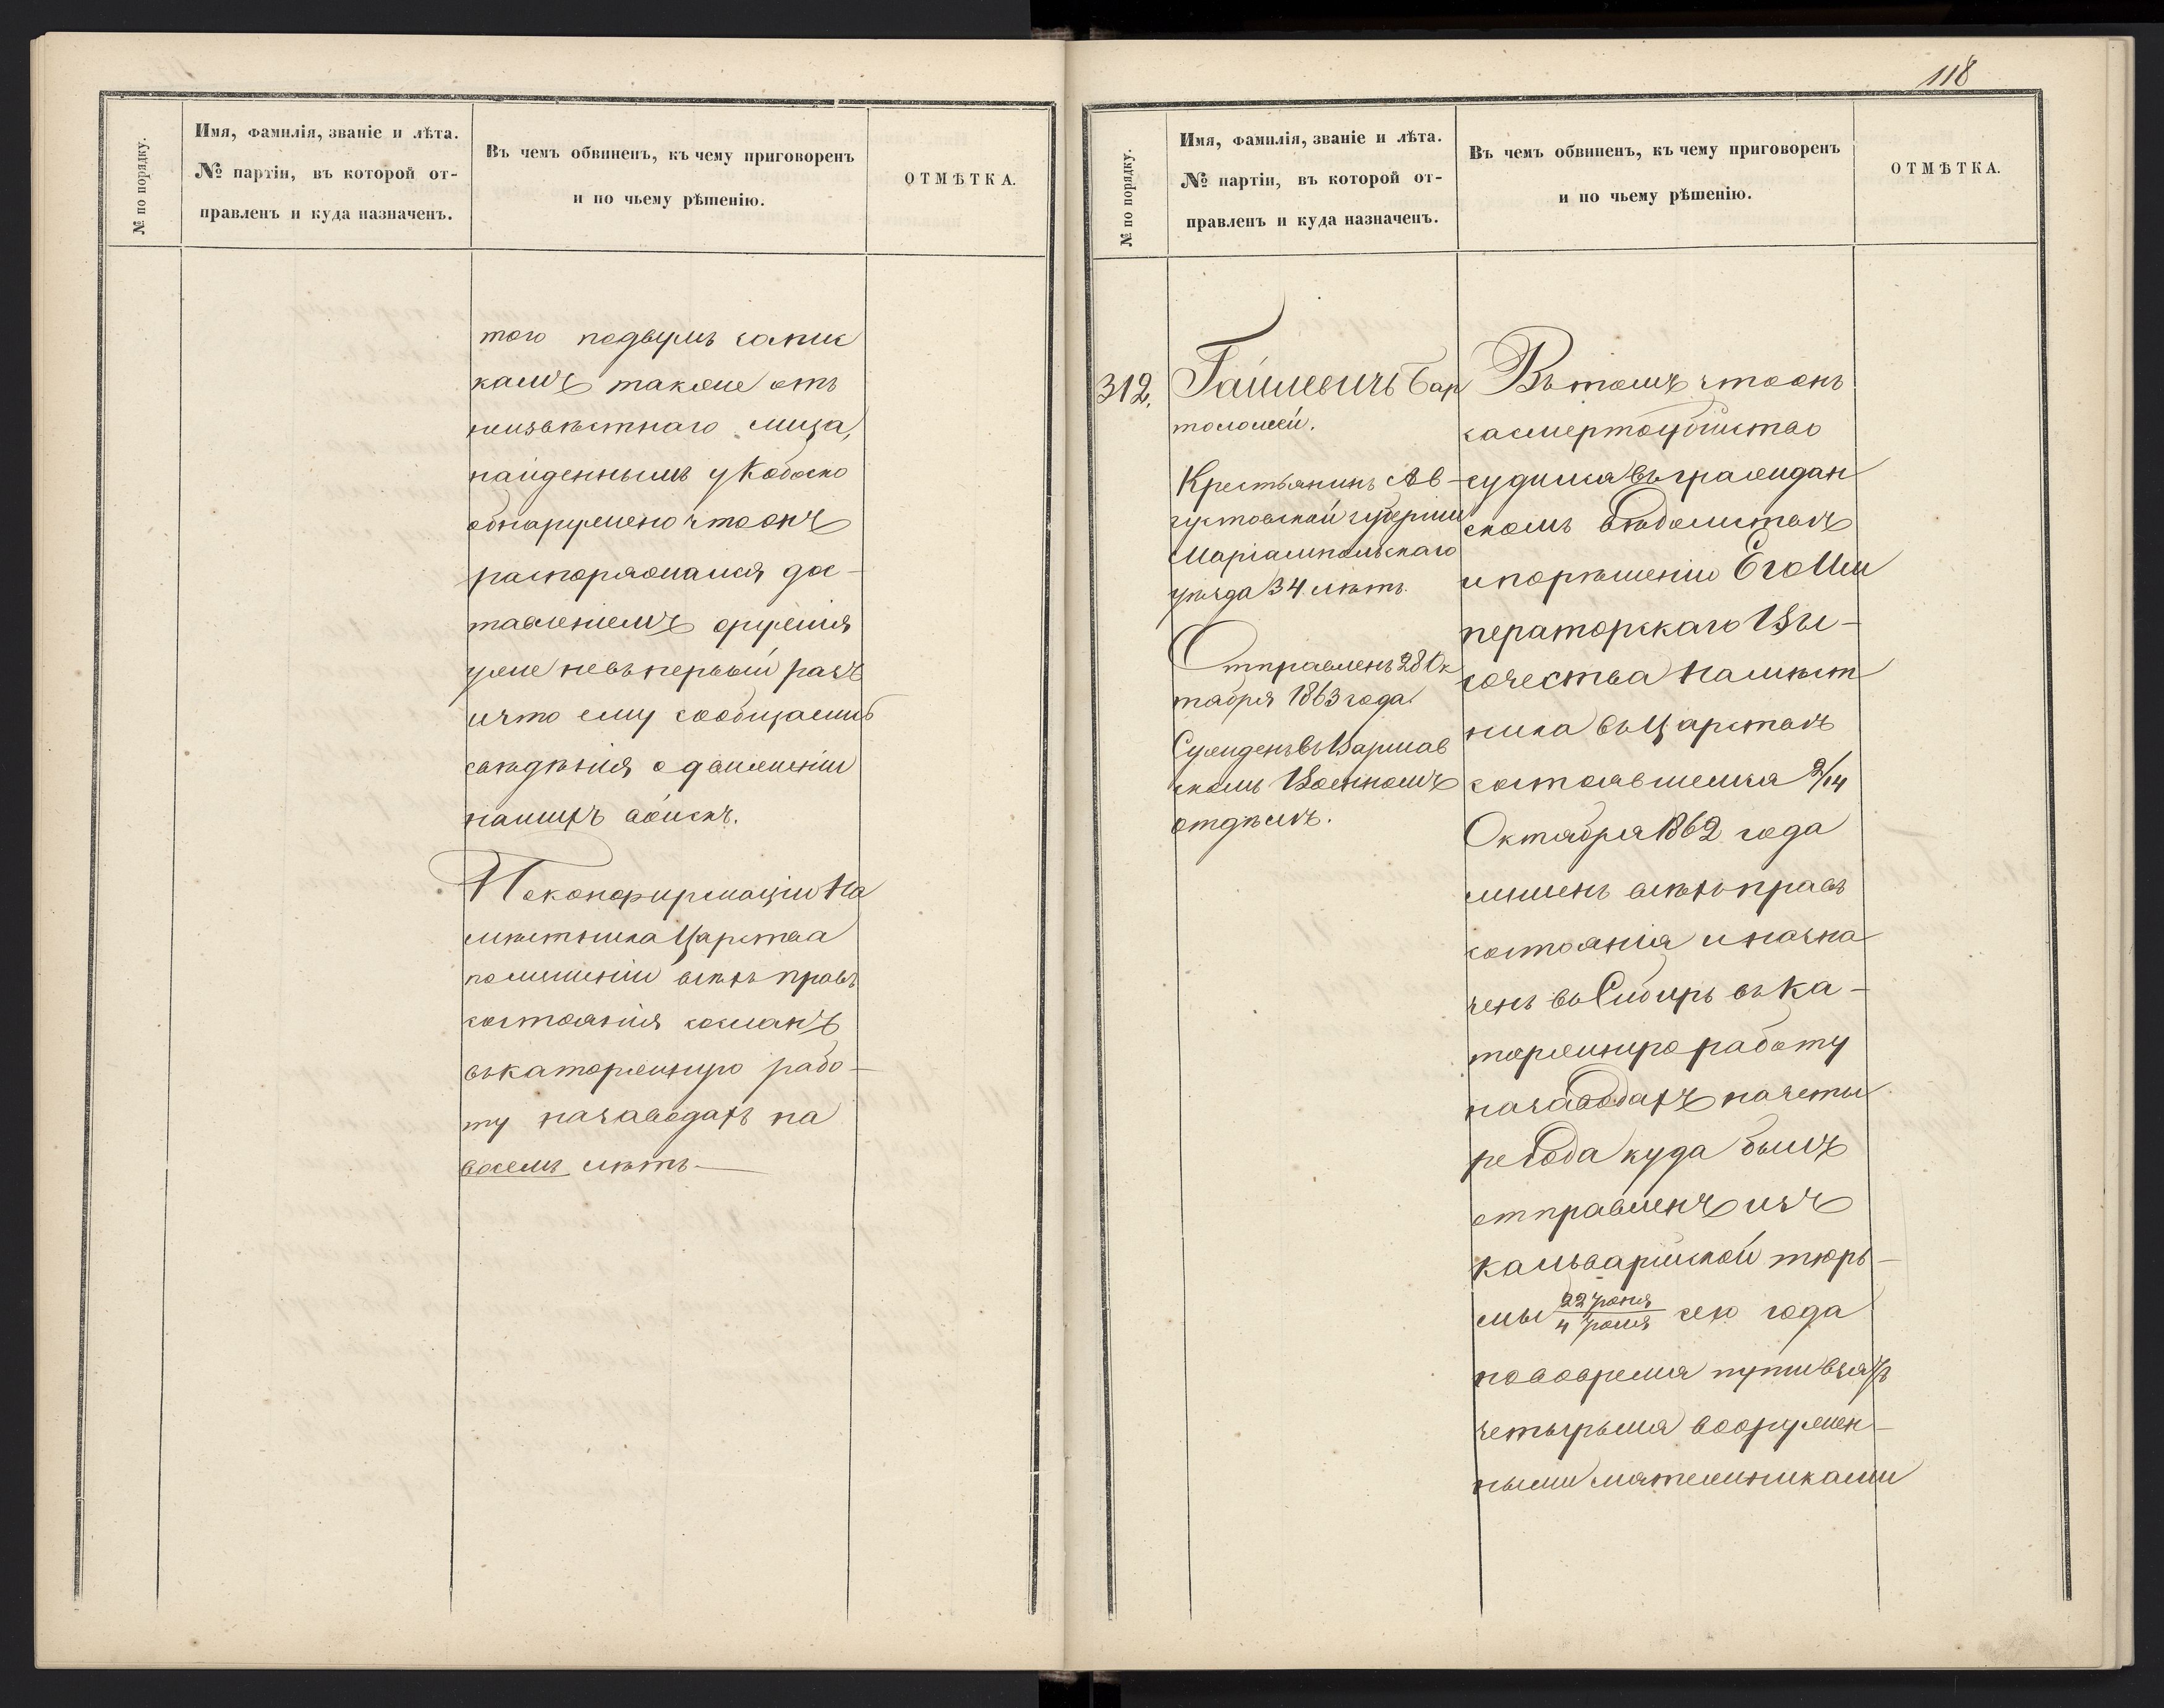 № по порядку.
Имя, фамилія, званіе и лѣта.
№ партіи, въ которой от-
правленъ и куда назначенъ.
Въ чемъ обвиненъ, къ чему приговоренъ
и по чьему рѣшенію.
ОТМѢТКА.
того подвумъ запис
камъ также отъ
неизвѣстнаго лица,
найденнымъ у Кобоско
обнаружено что онъ
распоряжался дос-
тавленіемъ оружія
уже невъ первый разъ
и что ему сообщались
свѣдѣнія о движеніи
нашихъ войскъ.
Поконфирмаціи На
мѣстника Царства
полишеніи всѣхъ правъ
состоянія сосланъ
въ каторжную рабо-
ту назаводахъ на
восемь лѣтъ
118
№ по порядку.
Имя, фамилія, званіе и лѣта.
№ партіи, въ которой от-
правленъ и куда назначенъ.
Въ чемъ обвиненъ, къ чему приговоренъ
и по чьему рѣшенію.
ОТМѢТКА.
312.
Гайлевичъ Бар
толомей.
Крестьянинъ Ав-
густовской губерніи
Маріампольскаго
уѣзда 34 лѣтъ.
Отправленъ 28 Ок
тября 1863 года.
Сужденъ въ Варшав
скомъ Военномъ
отдѣлѣ.
Въ томъ что онъ
засмертоубійство
судился въ граждан
скомъ вѣдомствѣ
и порѣшенію Его Им
ператорскаго Вы-
сочества Намѣст
ника въ Царствѣ
состоявшемся 2/14
Октября 1862 года
лишенъ всѣхъ правъ
состоянія и назна
ченъ въ Сибирь въ ка-
торжную работу
назаводахъ на четы
ре года куда былъ
отправленъ изъ
кальварійской тюрь-
мы 22 Іюня / 4 Іюля сего года
нововремя пути взятъ
четырьмя вооружен-
ными мятежниками